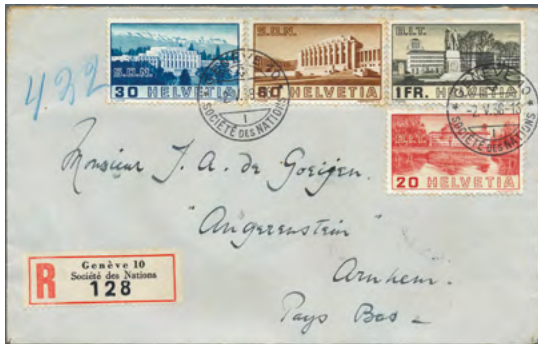 S.D.N.
30 HELVETIA
S.D.N.
60 HELVETIA
B.I.T.
1 FR. HELVETIA
B.I.T.
20 HELVETIA
GENÈVE 10
SOCIÉTÉ DES NATIONS
1
GENÈVE 10
-2.V.38-15
SOCIÉTÉ DES NATIONS
1
432
Monsieur J. A. de Goeijen.
"Angerenstein"
Arnhem.
Pays Bas
R
Genève 10
Société des Nations
128